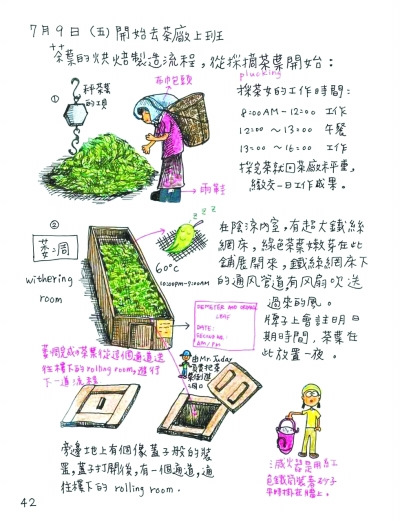 7月9日(五)開始去茶廠上班
茶葉的烘焙製造流程,從採摘茶葉開始:
plucking
秤茶葉
的項
①
布巾包頭
雨鞋
採茶女的工作時間:
8:00AM~12:00 工作
12:00 ~ 13:00 午餐
13:00 ~ 16:00 工作
採完茶就回茶廠秤重,
繳交一日工作成果。
②
萎凋
withering
room
zzz
60°C
10:00PM~9:00AM
在陰涼內室,有超大鐵絲
網床,綠色茶葉嫩芽在此
鋪展開來,鐵絲網床下
的通風管道有風扇吹送
過來的風。
牌子上會註明日
期時間,茶葉在
此放置一夜。
LEAF
DATE:
AM/PM
萎凋完成の茶葉從這個通道送
往樓下的rolling room,進行
下一道流程
由Mr.
旁邊地上有個像蓋子般的裝
置,蓋子打開後,有一個通道,通
往樓下的 rolling room.
滅火器是用紅
色鐵筒裝著砂子
平時掛在牆上。
42